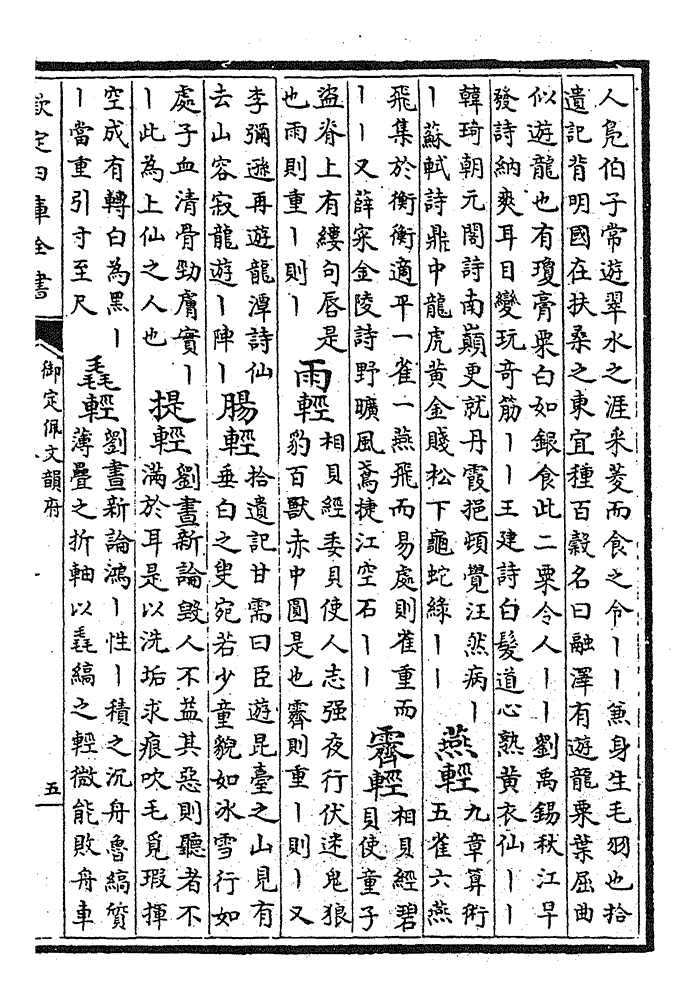 人鳧伯子常遊翠水之涯采菱而食之令丨丨兼身生毛羽也拾
遺記背明國在扶桑之東宜種百穀名曰融澤有遊龍粟葉屈曲
似遊龍也有瓊膏粟白如銀食此二粟令人丨丨劉禹錫秋江早
發詩納爽耳目變玩奇筋丨丨王建詩白髮道心熟黃衣仙丨丨
韓琦朝元閣詩南巔更就丹霞挹頓覺汪然病丨
丨蘇軾詩鼎中龍虎黃金賤松下龜蛇綠丨丨
燕輕
九章算術
五雀六燕
飛集於衡衡適平一雀一燕飛而易處則雀重而
丨丨又薛寀金陵詩野曠風鳶捷江空石丨丨
霽輕
相貝經碧
貝使童子
盜脊上有縷句唇是
也雨則重丨則丨
雨輕
相貝經委貝使人志强夜行伏迷鬼狼
豹百獸赤中圓是也霽則重丨則丨又
李彌遜再遊龍潭詩仙
去山容寂龍遊丨陣丨
腸輕
拾遺記甘需曰臣遊昆臺之山見有
垂白之叟宛若少童貌如冰雪行如
處子血清骨勁膚實丨
丨此為上仙之人也
提輕
劉晝新論毀人不益其惡則聽者不
滿於耳是以洗垢求痕吹毛覓瑕揮
空成有轉白為黑丨
丨當重引寸至尺
毳輕
劉晝新論鴻丨性丨積之沉舟魯縞質
薄疊之折軸以毳縞之輕微能敗舟車
欽定四庫全書
御定佩文韻府
五